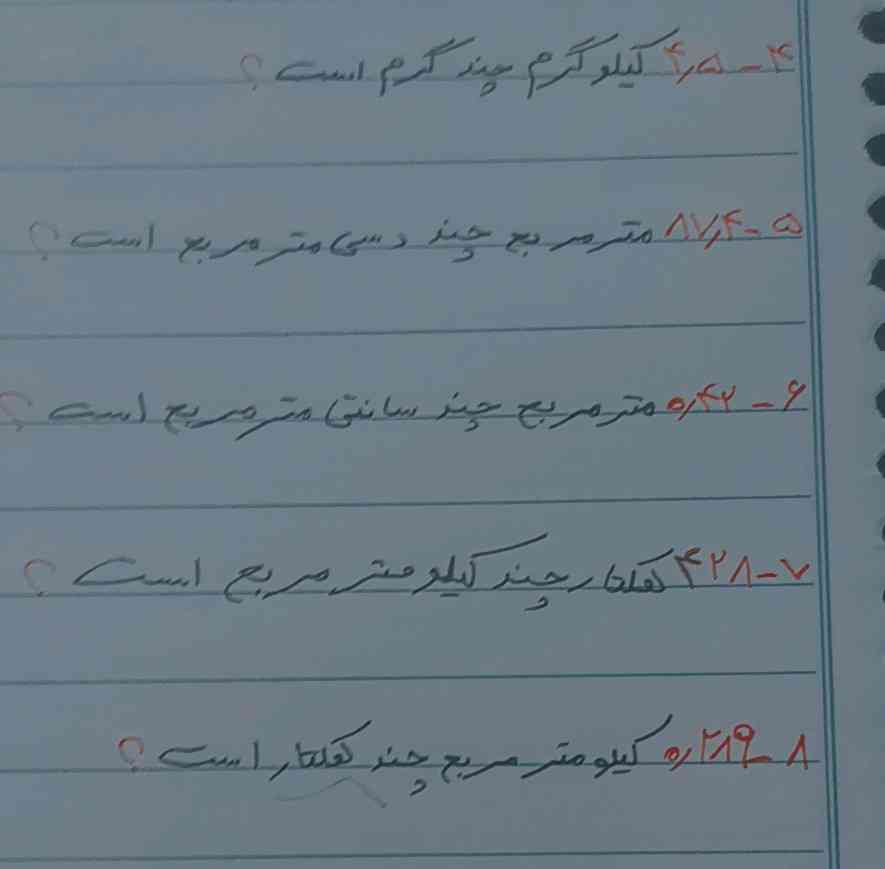 ۴- ۴٫۵ کیلوگرم چند گرم است؟
۵- ۸۷٫۴ مترمربع چند دسی مترمربع است؟
۶- ۰٫۴۲ مترمربع چند سانتی مترمربع است؟
۷- ۴۲۸ هکتار چند کیلومترمربع است؟
۸- ۰٫۲۸۹ کیلومترمربع چند هکتار است؟